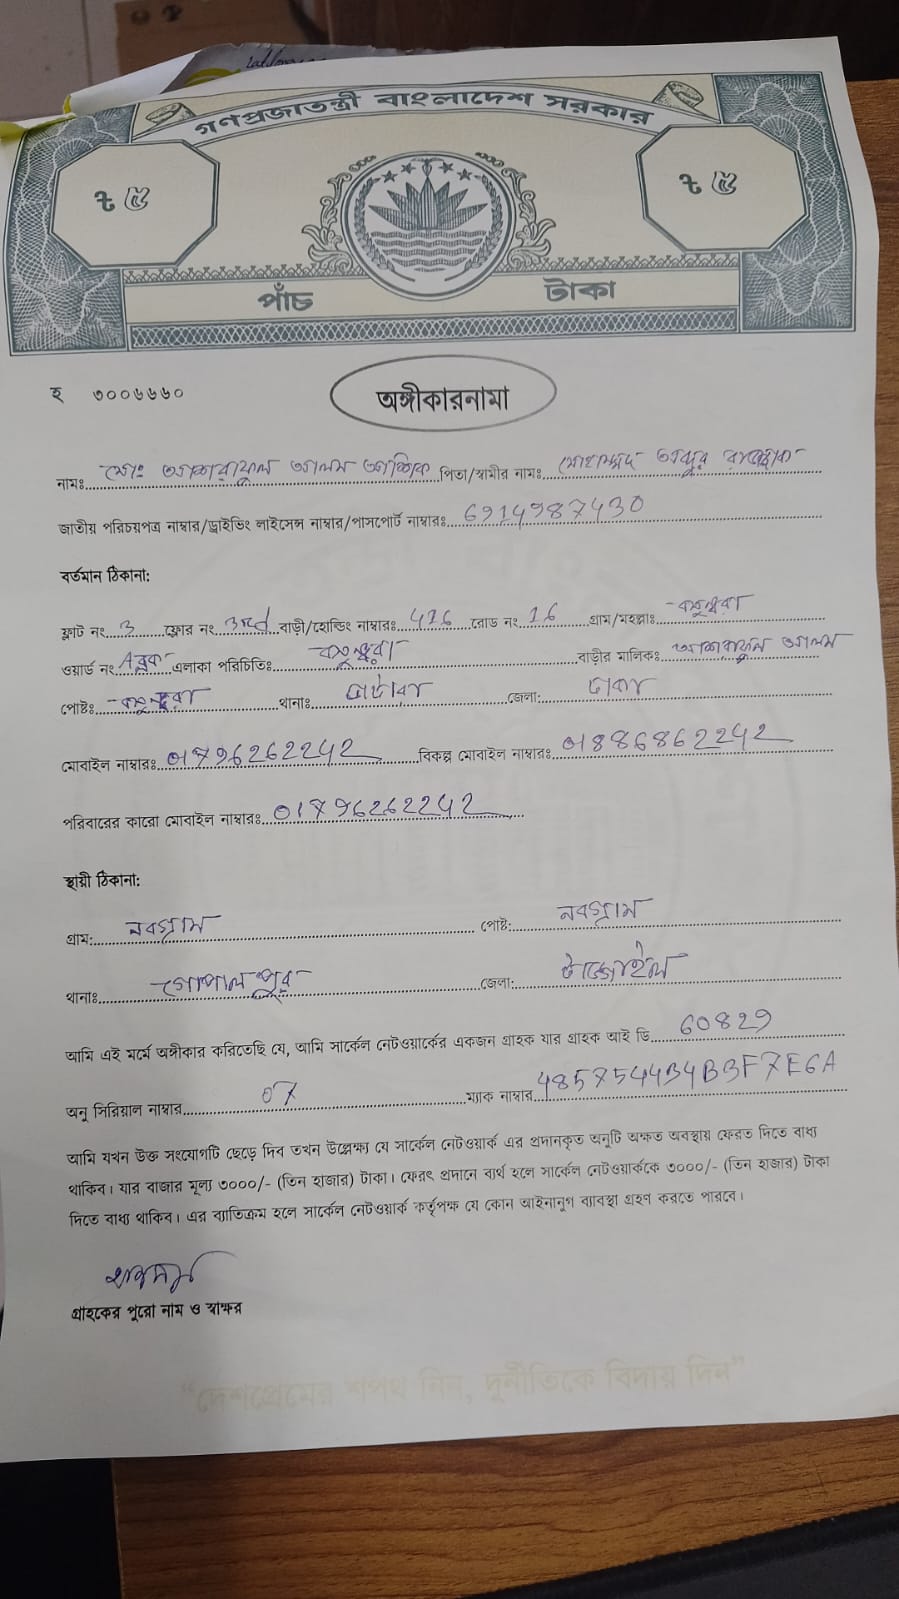 গণপ্রজাতন্ত্রী বাংলাদেশ সরকার
৳ ৫
৳ ৫
পাঁচ টাকা
হ ৩০০৬৬৬০
অঙ্গীকারনামা
নামঃ মোঃ আশরাফুল আলম আশিক পিতা/স্বামীর নামঃ মোহাম্মদ আব্দুর রাজ্জাক
জাতীয় পরিচয়পত্র নাম্বার/ড্রাইভিং লাইসেন্স নাম্বার/পাসপোর্ট নাম্বারঃ 6914987430
বর্তমান ঠিকানা:
ফ্লাট নং 3 ফ্লোর নং 3rd বাড়ী/হোল্ডিং নাম্বারঃ 416 রোড নং 16 গ্রাম/মহল্লাঃ বসুন্ধরা
ওয়ার্ড নং A ব্লক এলাকা পরিচিতিঃ বসুন্ধরা বাড়ীর মালিকঃ আশরাফুল আলম
পোষ্টঃ বসুন্ধরা থানাঃ ভাটারা জেলা: ঢাকা
মোবাইল নাম্বারঃ 01796262242 বিকল্প মোবাইল নাম্বারঃ 01886862242
পরিবারের কারো মোবাইল নাম্বারঃ 01796262242
স্থায়ী ঠিকানা:
গ্রাম: নবগ্রাম পোষ্ট: নবগ্রাম
থানাঃ গোপালপুর জেলা: টাঙ্গাইল
আমি এই মর্মে অঙ্গীকার করিতেছি যে, আমি সার্কেল নেটওয়ার্কের একজন গ্রাহক যার গ্রাহক আই ডি 60829
অনু সিরিয়াল নাম্বার 07 ম্যাক নাম্বার 485754434B3F7E6A
আমি যখন উক্ত সংযোগটি ছেড়ে দিব তখন উল্লেক্ষ্য যে সার্কেল নেটওয়ার্ক এর প্রদানকৃত অনুটি অক্ষত অবস্থায় ফেরত দিতে বাধ্য
থাকিব। যার বাজার মূল্য ৩০০০/- (তিন হাজার) টাকা। ফেরৎ প্রদানে ব্যর্থ হলে সার্কেল নেটওয়ার্ককে ৩০০০/- (তিন হাজার) টাকা
দিতে বাধ্য থাকিব। এর ব্যাতিক্রম হলে সার্কেল নেটওয়ার্ক কর্তৃপক্ষ যে কোন আইনানুগ ব্যাবস্থা গ্রহণ করতে পারবে।
গ্রাহকের পুরো নাম ও স্বাক্ষর
“দেশপ্রেমের শপথ নিন, দুর্নীতিকে বিদায় দিন”